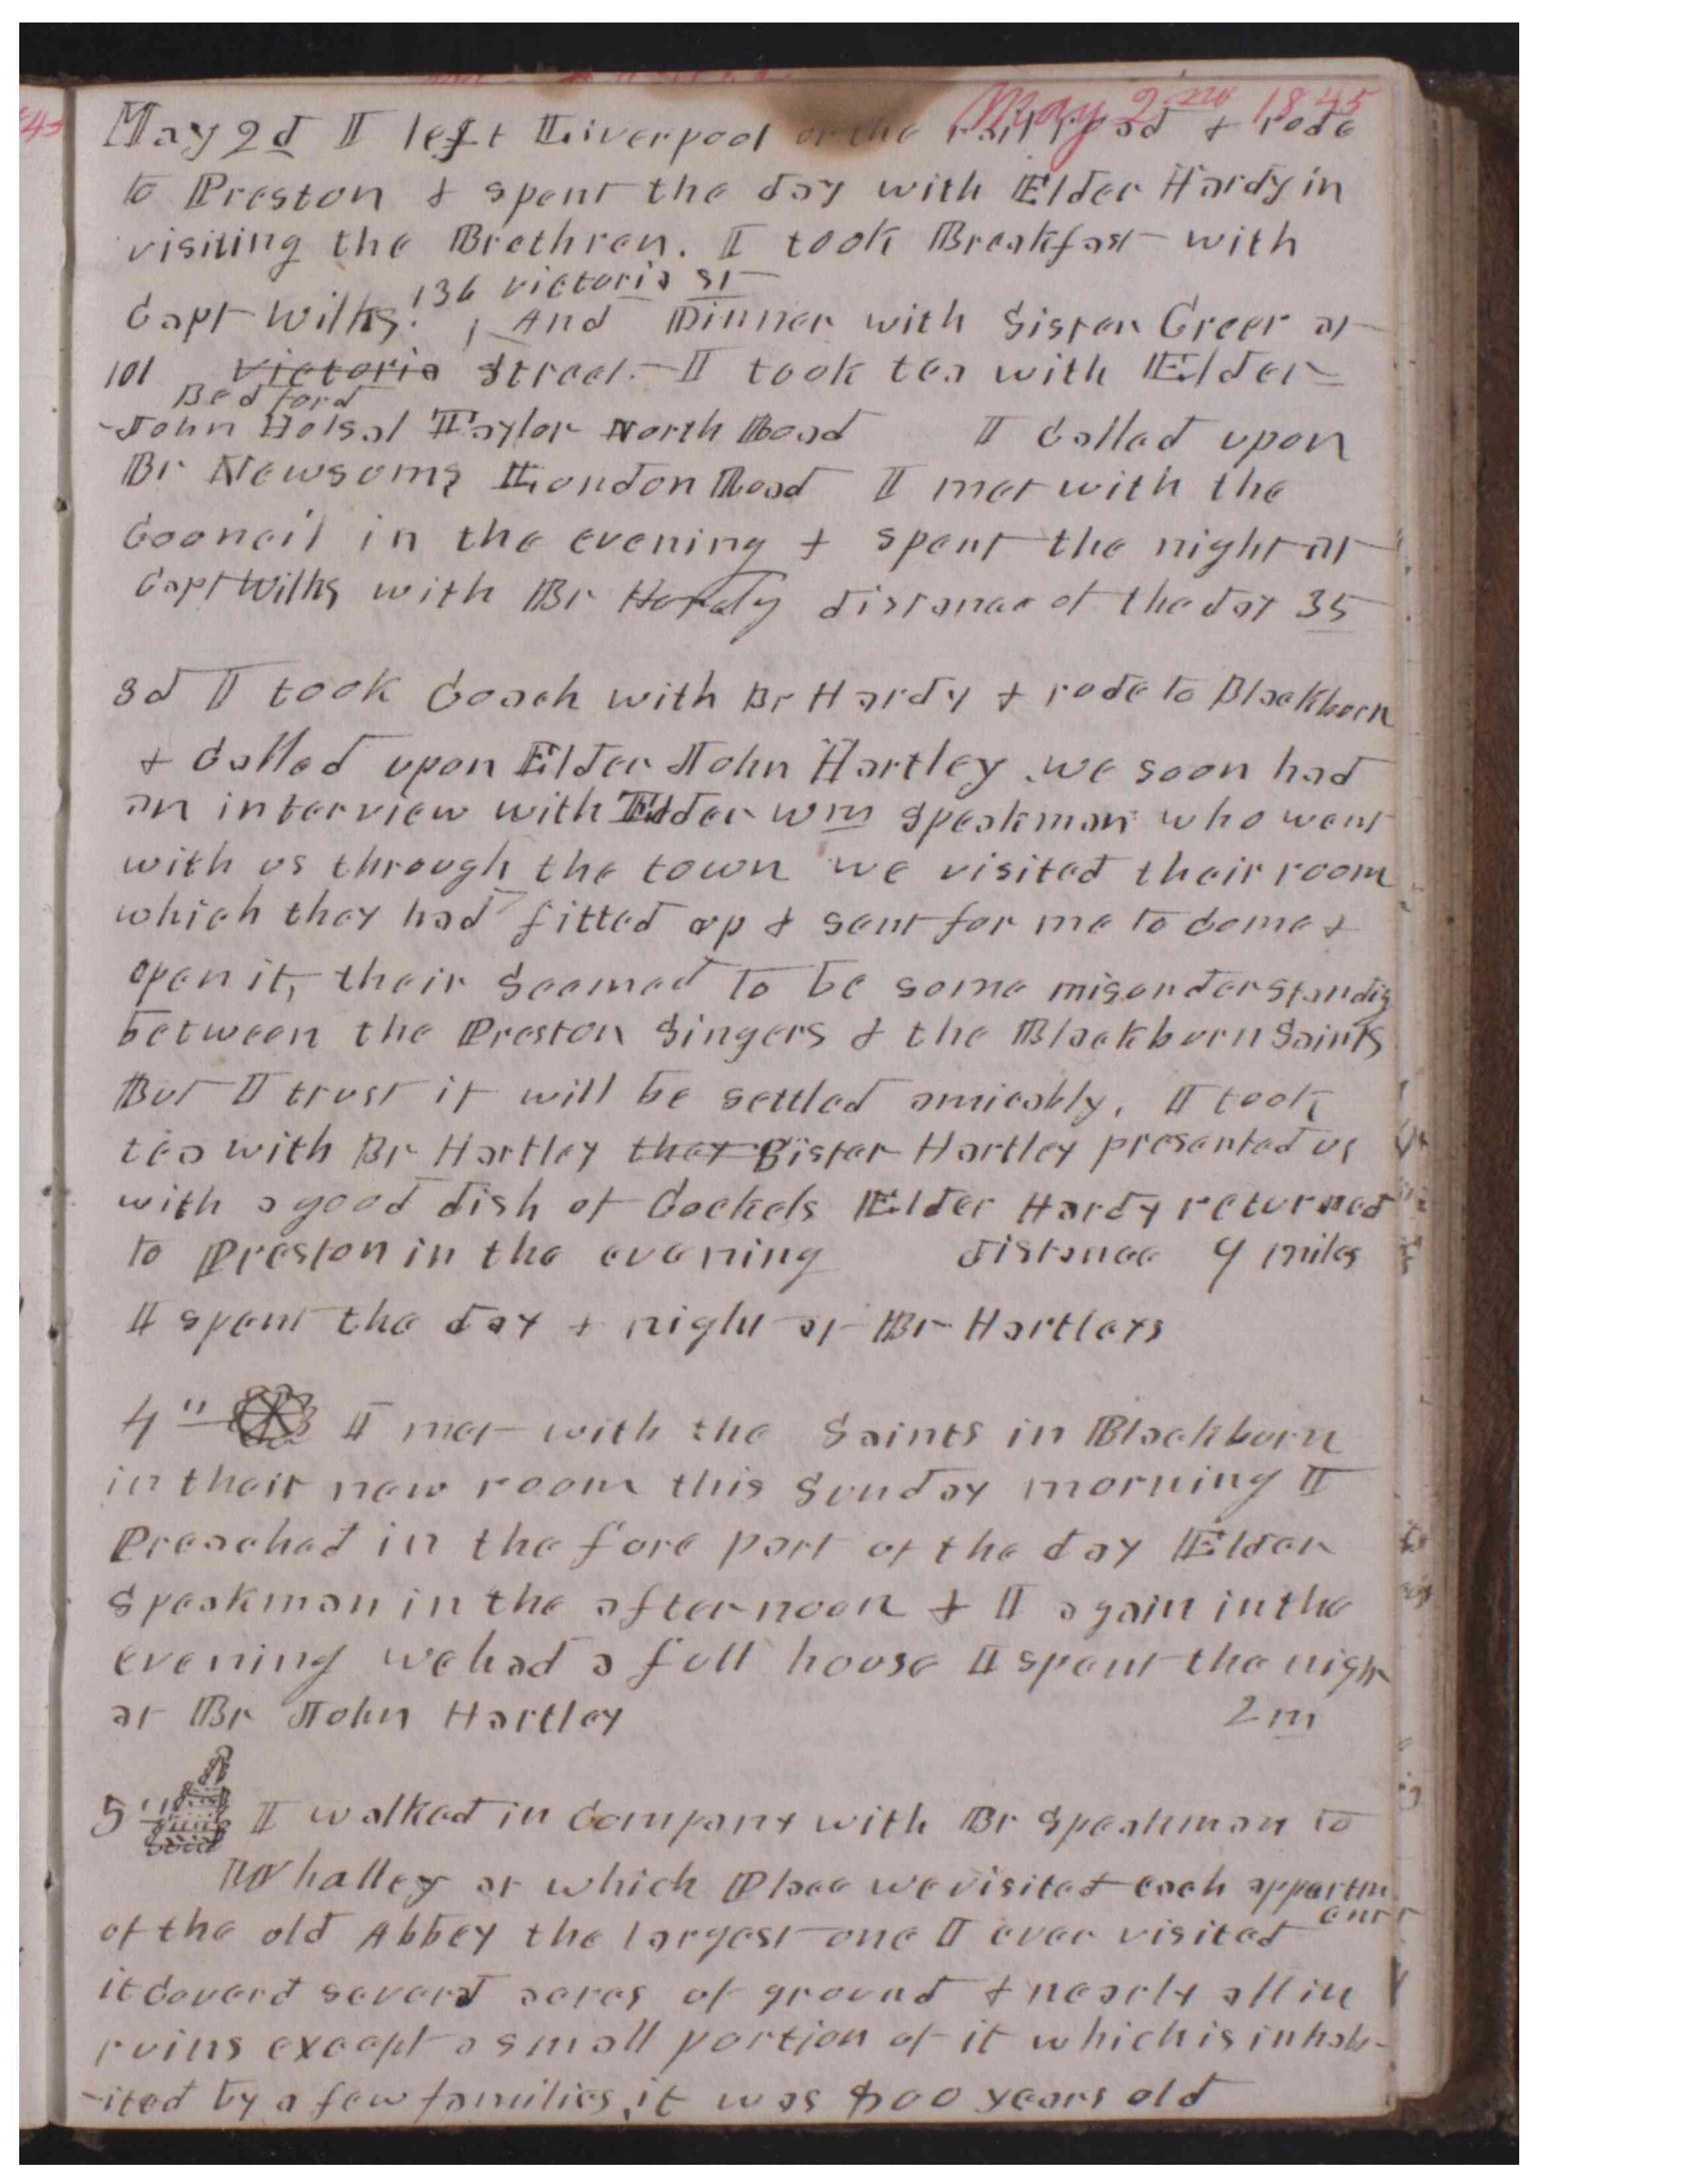 May 2nd 1845
May 2d I left Liverpool on the railroad & rode
to Preston & spent the day with Elder Hardy in
visiting the Brethren. I took Breakfast with
136 victoria st
Capt Wilks. , And Dinner with Sister Greer at
101 Victoria Street. I took tea with Elder
Bedford
John Halsal Taylor North Road I Called upon
Br Newsoms London Road I met with the
Council in the evening & spent the night at
Capt Wilks with Br Hardy distance of the day 35
3d I took Coach with Br Hardy & rode to Blackburn
& Called upon Elder John Hartley we soon had
an interview with Elder Wm Speakman who went
with us through the town we visited their room
which they had fitted up & sent for me to Come &
open it, their Seemed to be some misunderstandig
between the Preston Singers & the Blackburn Saints
But I trust it will be settled amicably. I took
tea with Br Hartley they Sister Hartley presented us
with a good dish of Cockels Elder Hardy returned
to Preston in the evening distance 9 miles
I spent the day & night at Br Hartleys
4" I met with the Saints in Blackburn
in their new room this Sunday morning I
Preached in the fore part of the day Elder
Speakman in the afternoon & I again in the
evening we had a full house I spent the nigh
at Br John Hartley 2 m
5" I walked in Company with Br Speakman to
Whalley at which Place we visited each appartm
ent
of the old Abbey the largest one I ever visited
it Coverd several acres of ground & nearly all in
ruins except a small portion of it which is inhab-
-ited by a few families, it was 800 years old